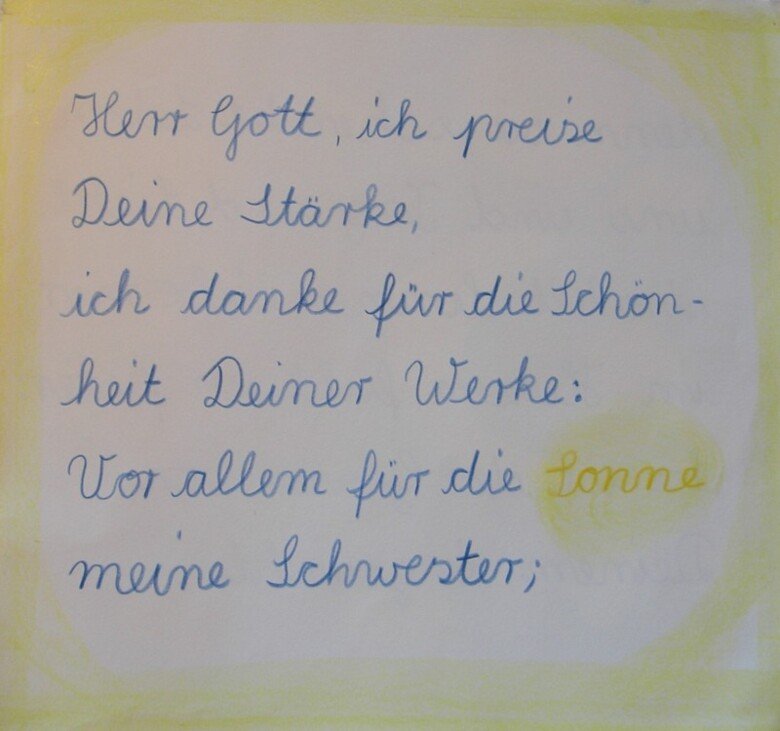 Herr Gott, ich preise
Deine Stärke,
ich danke für die Schön-
heit Deiner Werke:
Vor allem für die Sonne
meine Schwester;